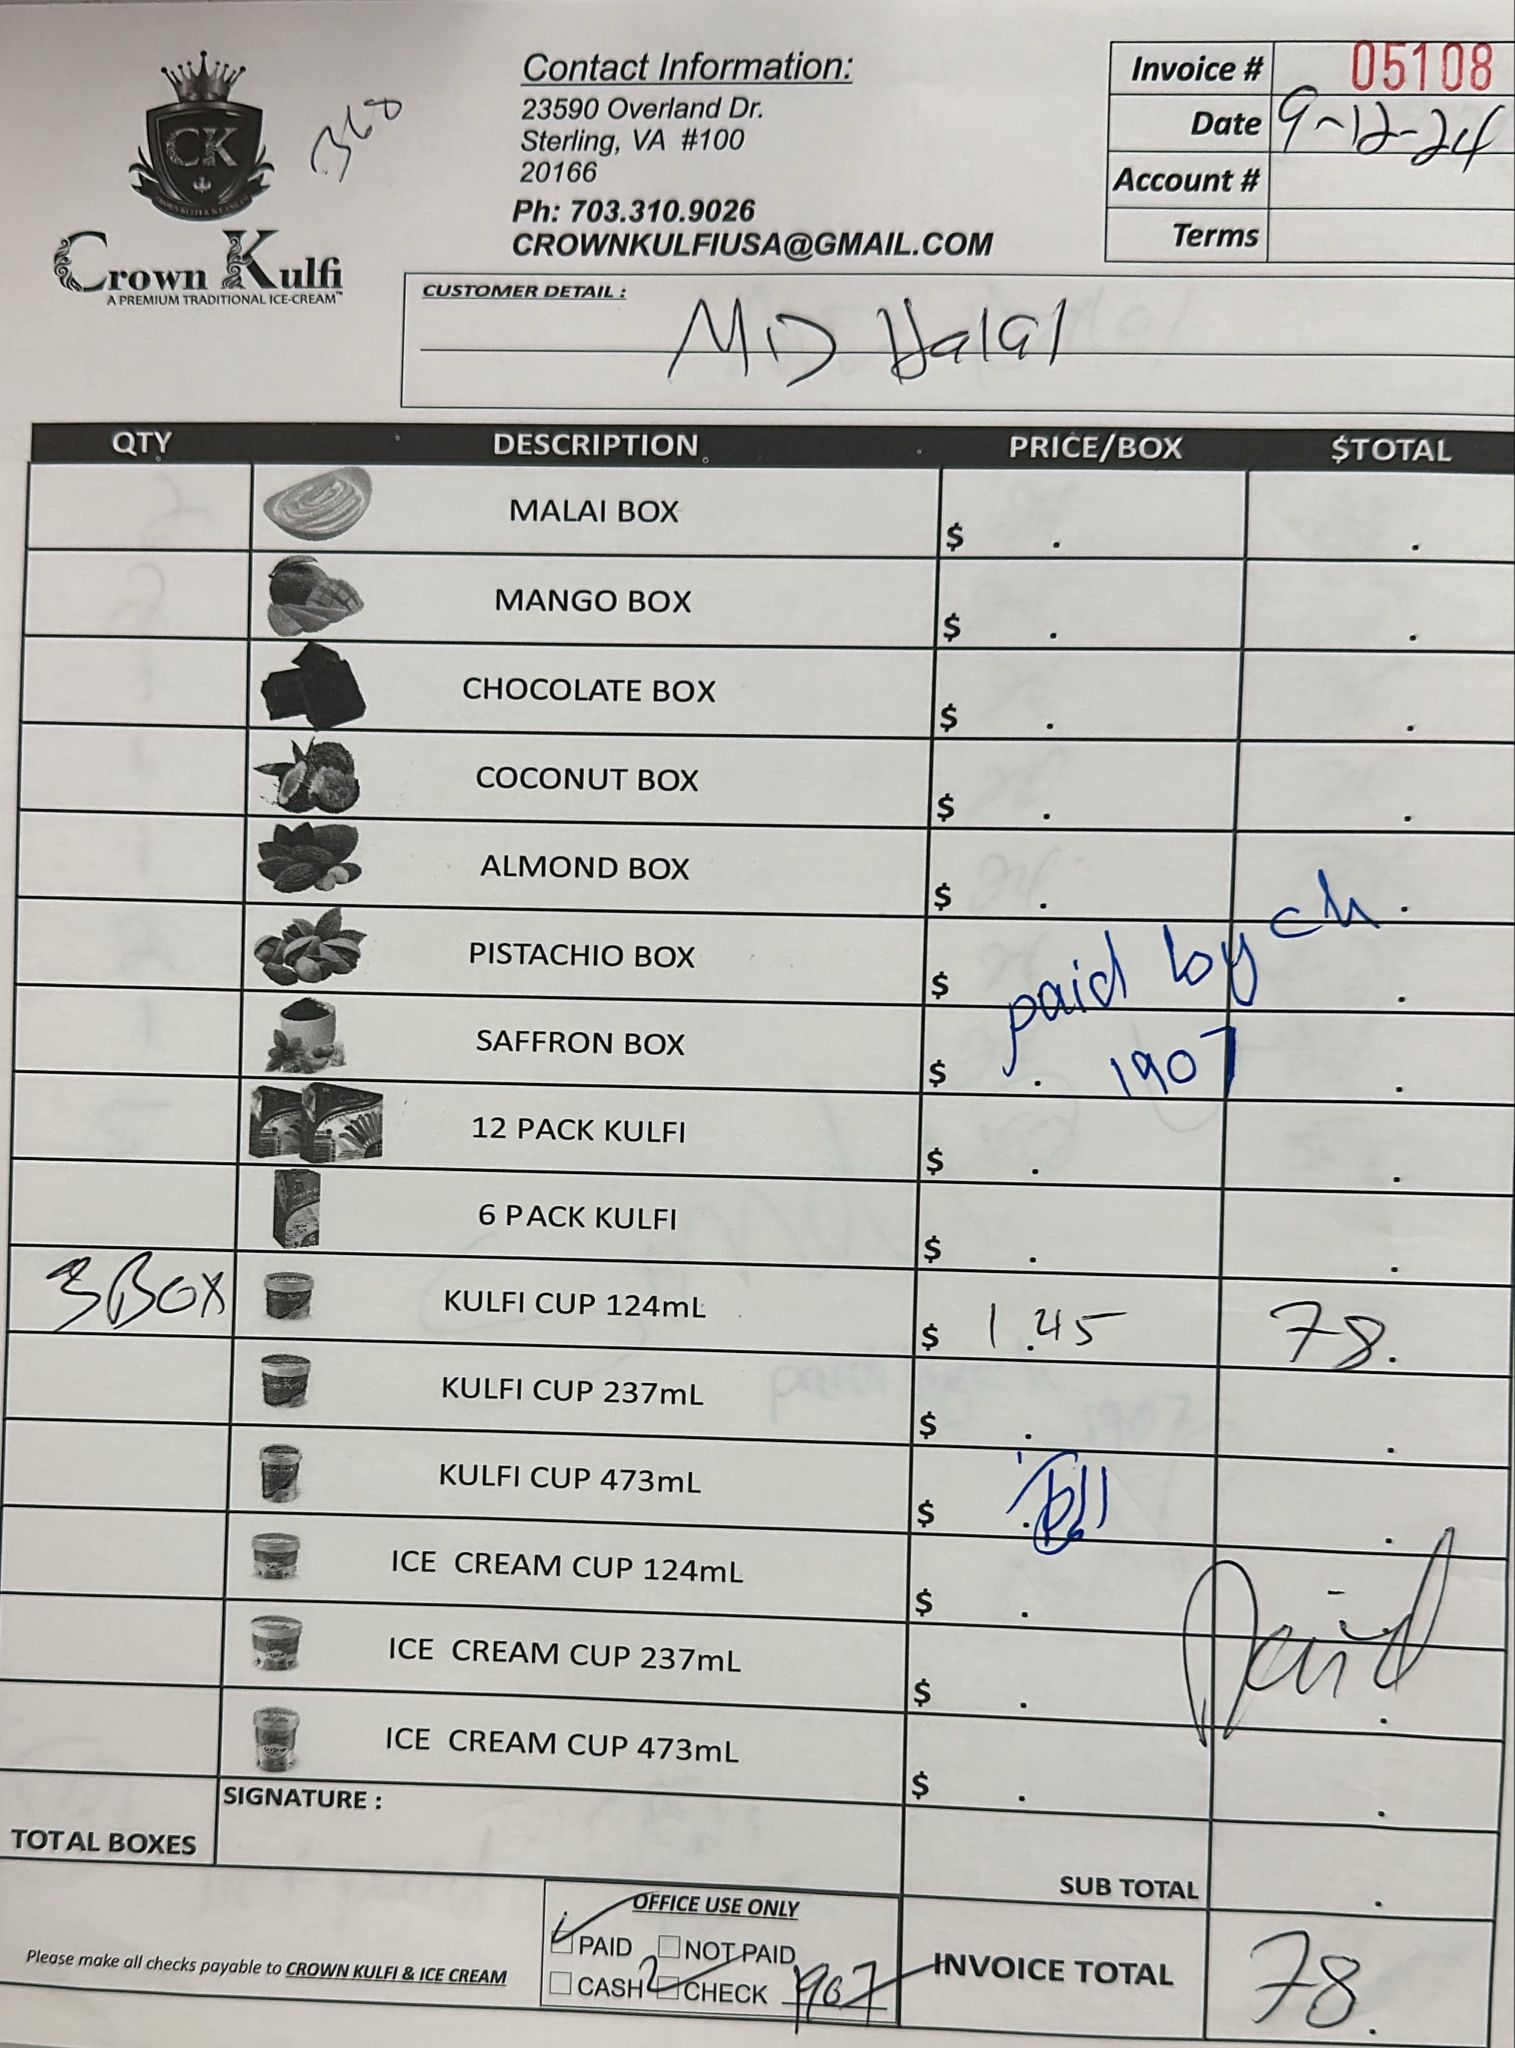 CK
360
Crown Kulfi
A PREMIUM TRADITIONAL ICE-CREAM™
Contact Information:
23590 Overland Dr.
Sterling, VA #100
20166
Ph: 703.310.9026
CROWNKULFIUSA@GMAIL.COM
Invoice # 05108
Date 9-12-24
Account #
Terms
CUSTOMER DETAIL :
MD Halal
QTY DESCRIPTION PRICE/BOX $TOTAL
MALAI BOX $ . .
MANGO BOX $ . .
CHOCOLATE BOX $ . .
COCONUT BOX $ . .
ALMOND BOX $ . .
PISTACHIO BOX $ .
paid by ch
SAFFRON BOX $ . .
1907
12 PACK KULFI $ . .
6 PACK KULFI $ . .
3 BOX KULFI CUP 124mL $ 1.45 78.
KULFI CUP 237mL $ . .
KULFI CUP 473mL $ . .
ICE CREAM CUP 124mL $ .
Paid
ICE CREAM CUP 237mL $ . .
ICE CREAM CUP 473mL $ . .
TOTAL BOXES
SIGNATURE :
SUB TOTAL .
Please make all checks payable to CROWN KULFI & ICE CREAM
OFFICE USE ONLY
PAID NOT PAID
CASH CHECK 1907
INVOICE TOTAL 78.